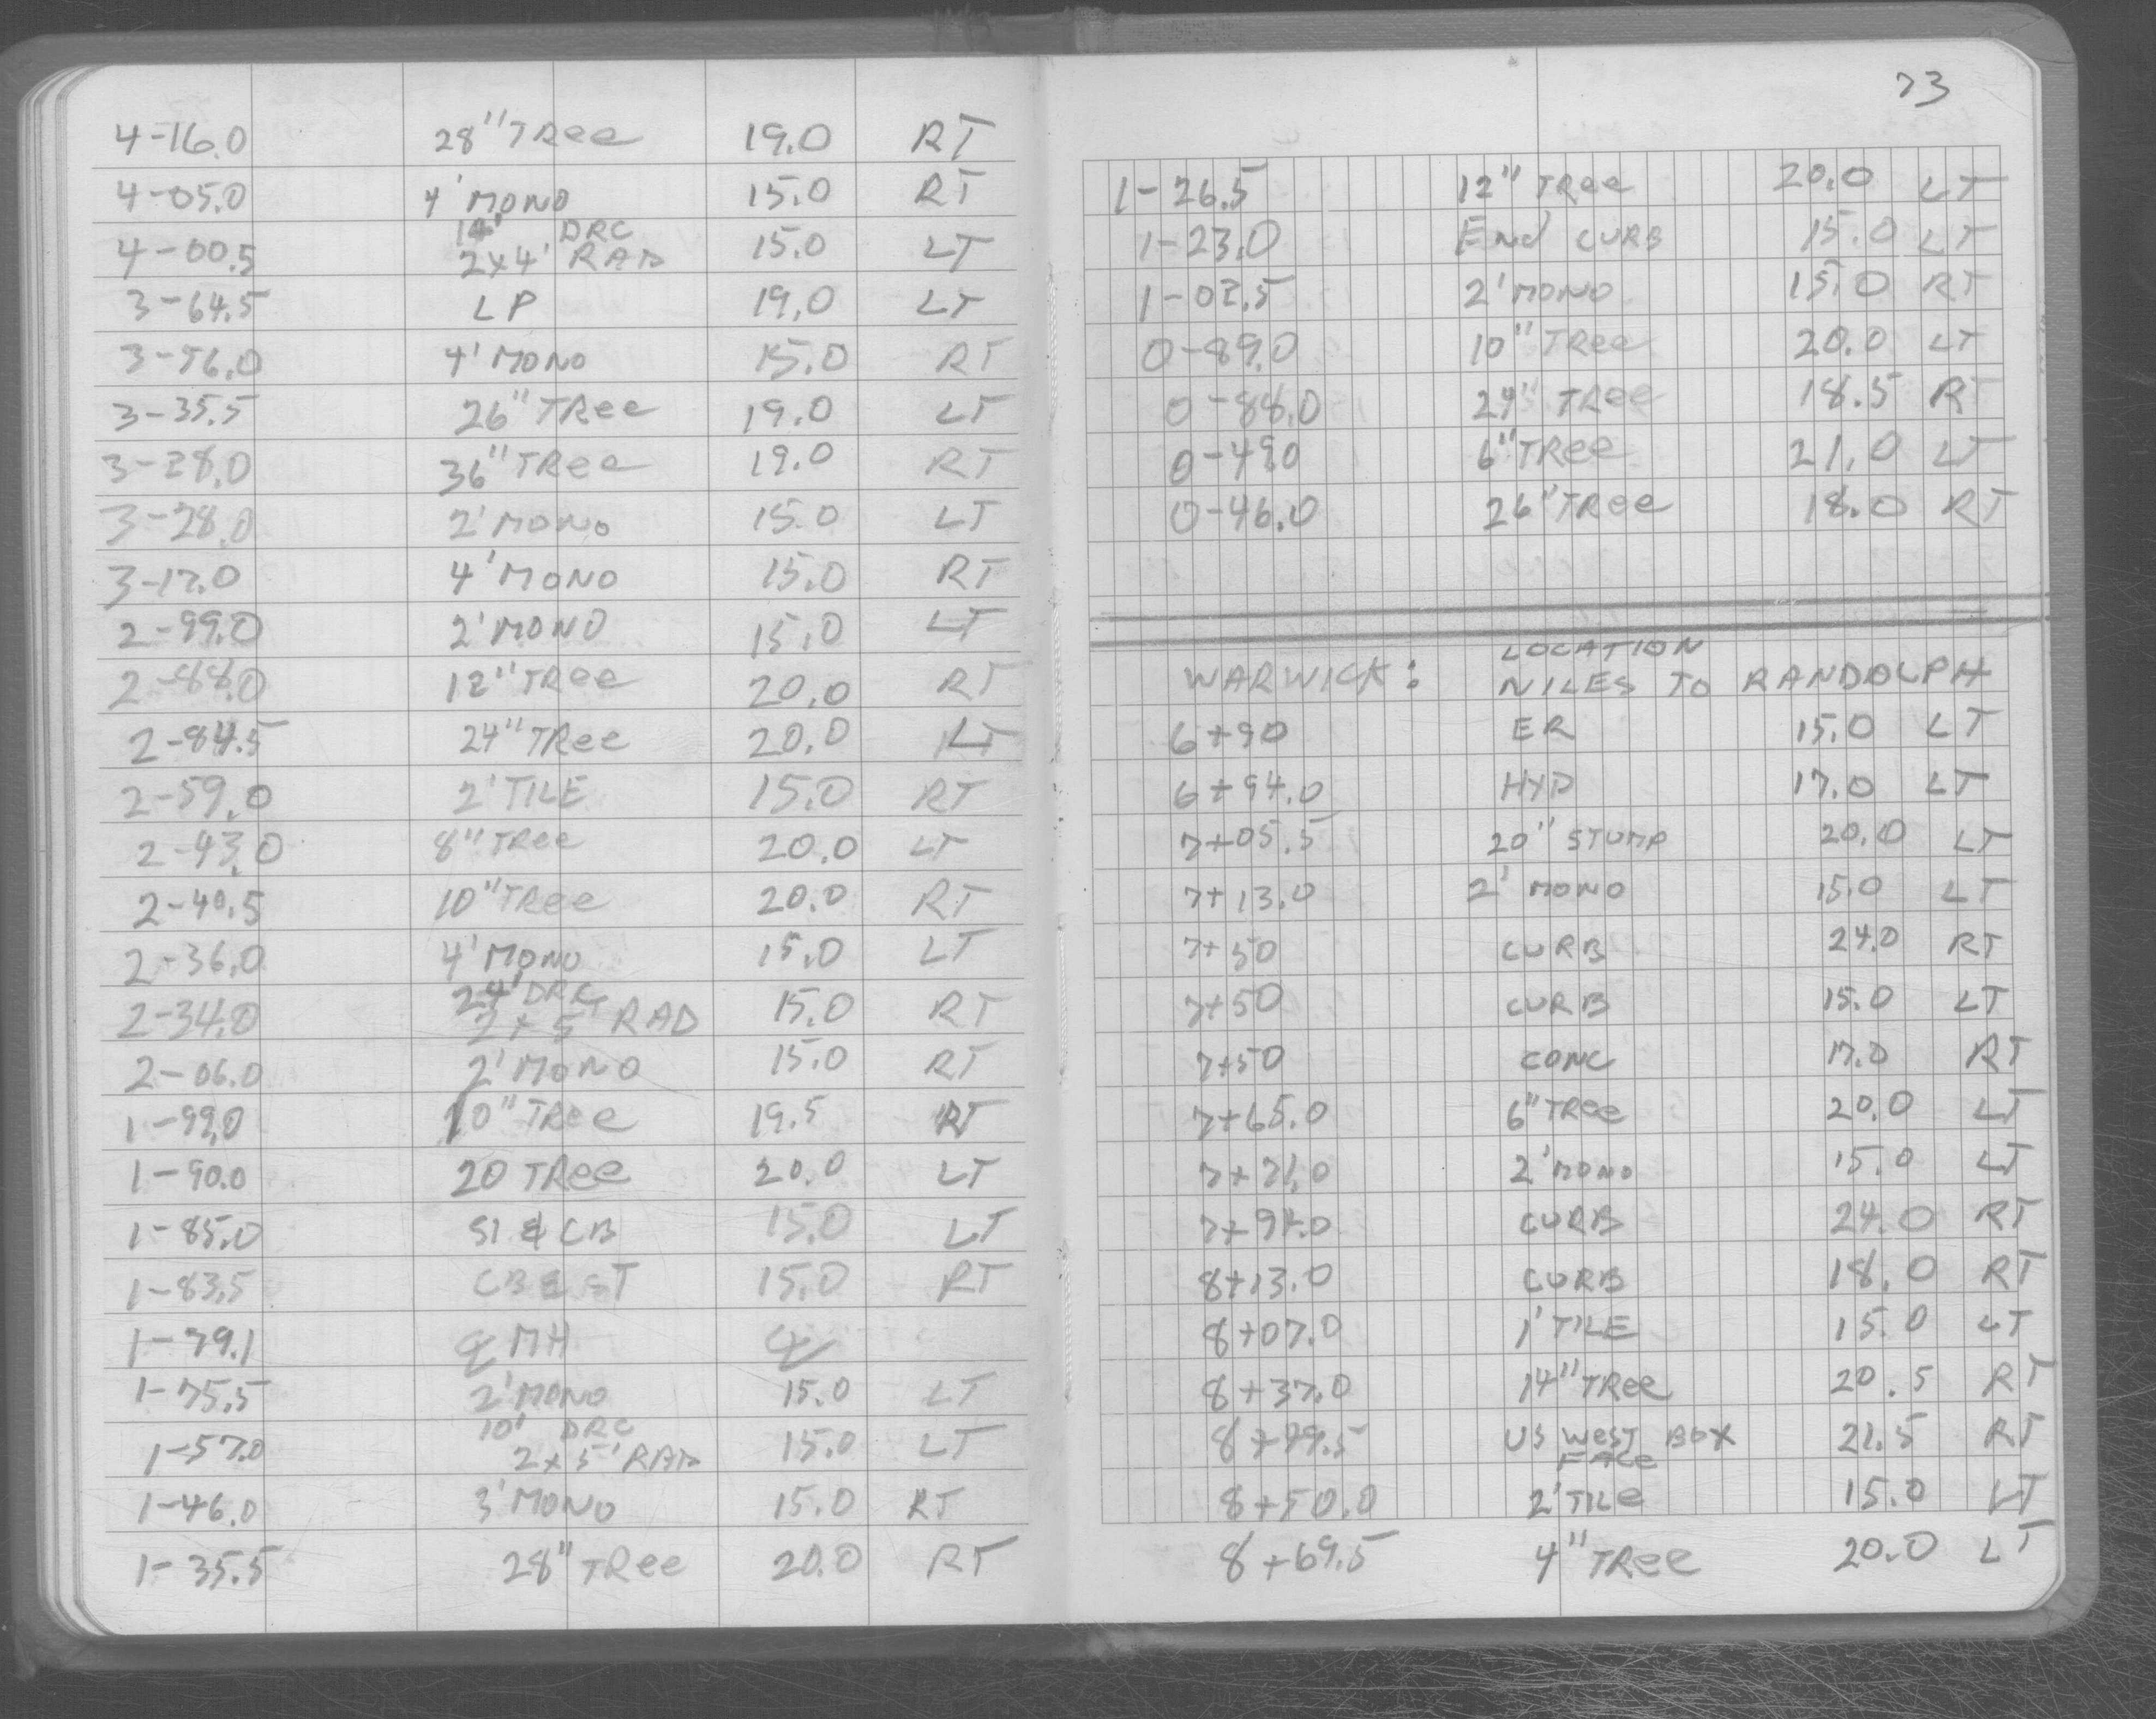 4-16.0 28" TRee 19.0 RT
4-05.0 4' MONO 15.0 RT
14' DRC
4-00.5 2x4' RAD 15.0 LT
3-64.5 LP 19.0 LT
3-56.0 4' MONO 15.0 RT
3-35.5 26" TRee 19.0 LT
3-28.0 36" TRee 19.0 RT
3-28.0 2' MONO 15.0 LT
3-17.0 4' MONO 15.0 RT
2-99.0 2' MONO 15.0 LT
2-88.0 12" TRee 20.0 RT
2-84.5 24" TRee 20.0 LT
2-59.0 2' TILE 15.0 RT
2-43.0 8" TRee 20.0 LT
2-40.5 10" TRee 20.0 RT
2-36.0 4' MONO 15.0 LT
24' DRC
2-34.0 2x5' RAD 15.0 RT
2-06.0 2' MONO 15.0 RT
1-99.0 10" TRee 19.5 RT
1-90.0 20 TRee 20.0 LT
1-85.0 SI & CB 15.0 LT
1-83.5 CB & ST 15.0 RT
1-79.1 ℄ MH ℄
1-75.5 2' MONO 15.0 LT
10' DRC
1-57.0 2x5' RAD 15.0 LT
1-46.0 3' MONO 15.0 RT
1-35.5 28" TRee 20.0 RT
73
1-26.5 12" TRee 20.0 LT
1-23.0 End CURB 15.0 LT
1-02.5 2' MONO 15.0 RT
0-89.0 10" TRee 20.0 LT
0-88.0 24" TRee 18.5 RT
0-49.0 6" TRee 21.0 LT
0-46.0 26" TRee 18.0 RT
LOCATION
WARWICK: NILES TO RANDOLPH
6+90 ER 15.0 LT
6+94.0 HYD 17.0 LT
7+05.5 20" STUMP 20.0 LT
7+13.0 2' MONO 15.0 LT
7+50 CURB 24.0 RT
7+50 CURB 15.0 LT
7+50 CONC 17.0 RT
7+65.0 6" TRee 20.0 LT
7+71.0 2' MONO 15.0 LT
CURB 24.0 RT
8+13.0 CURB 18.0 RT
8+07.0 1' TILE 15.0 LT
8+37.0 14" TRee 20.5 RT
US WeST BOX 21.5 RT
FACe
8+50.0 2' TILe 15.0 LT
8+69.5 4" TRee 20.0 LT